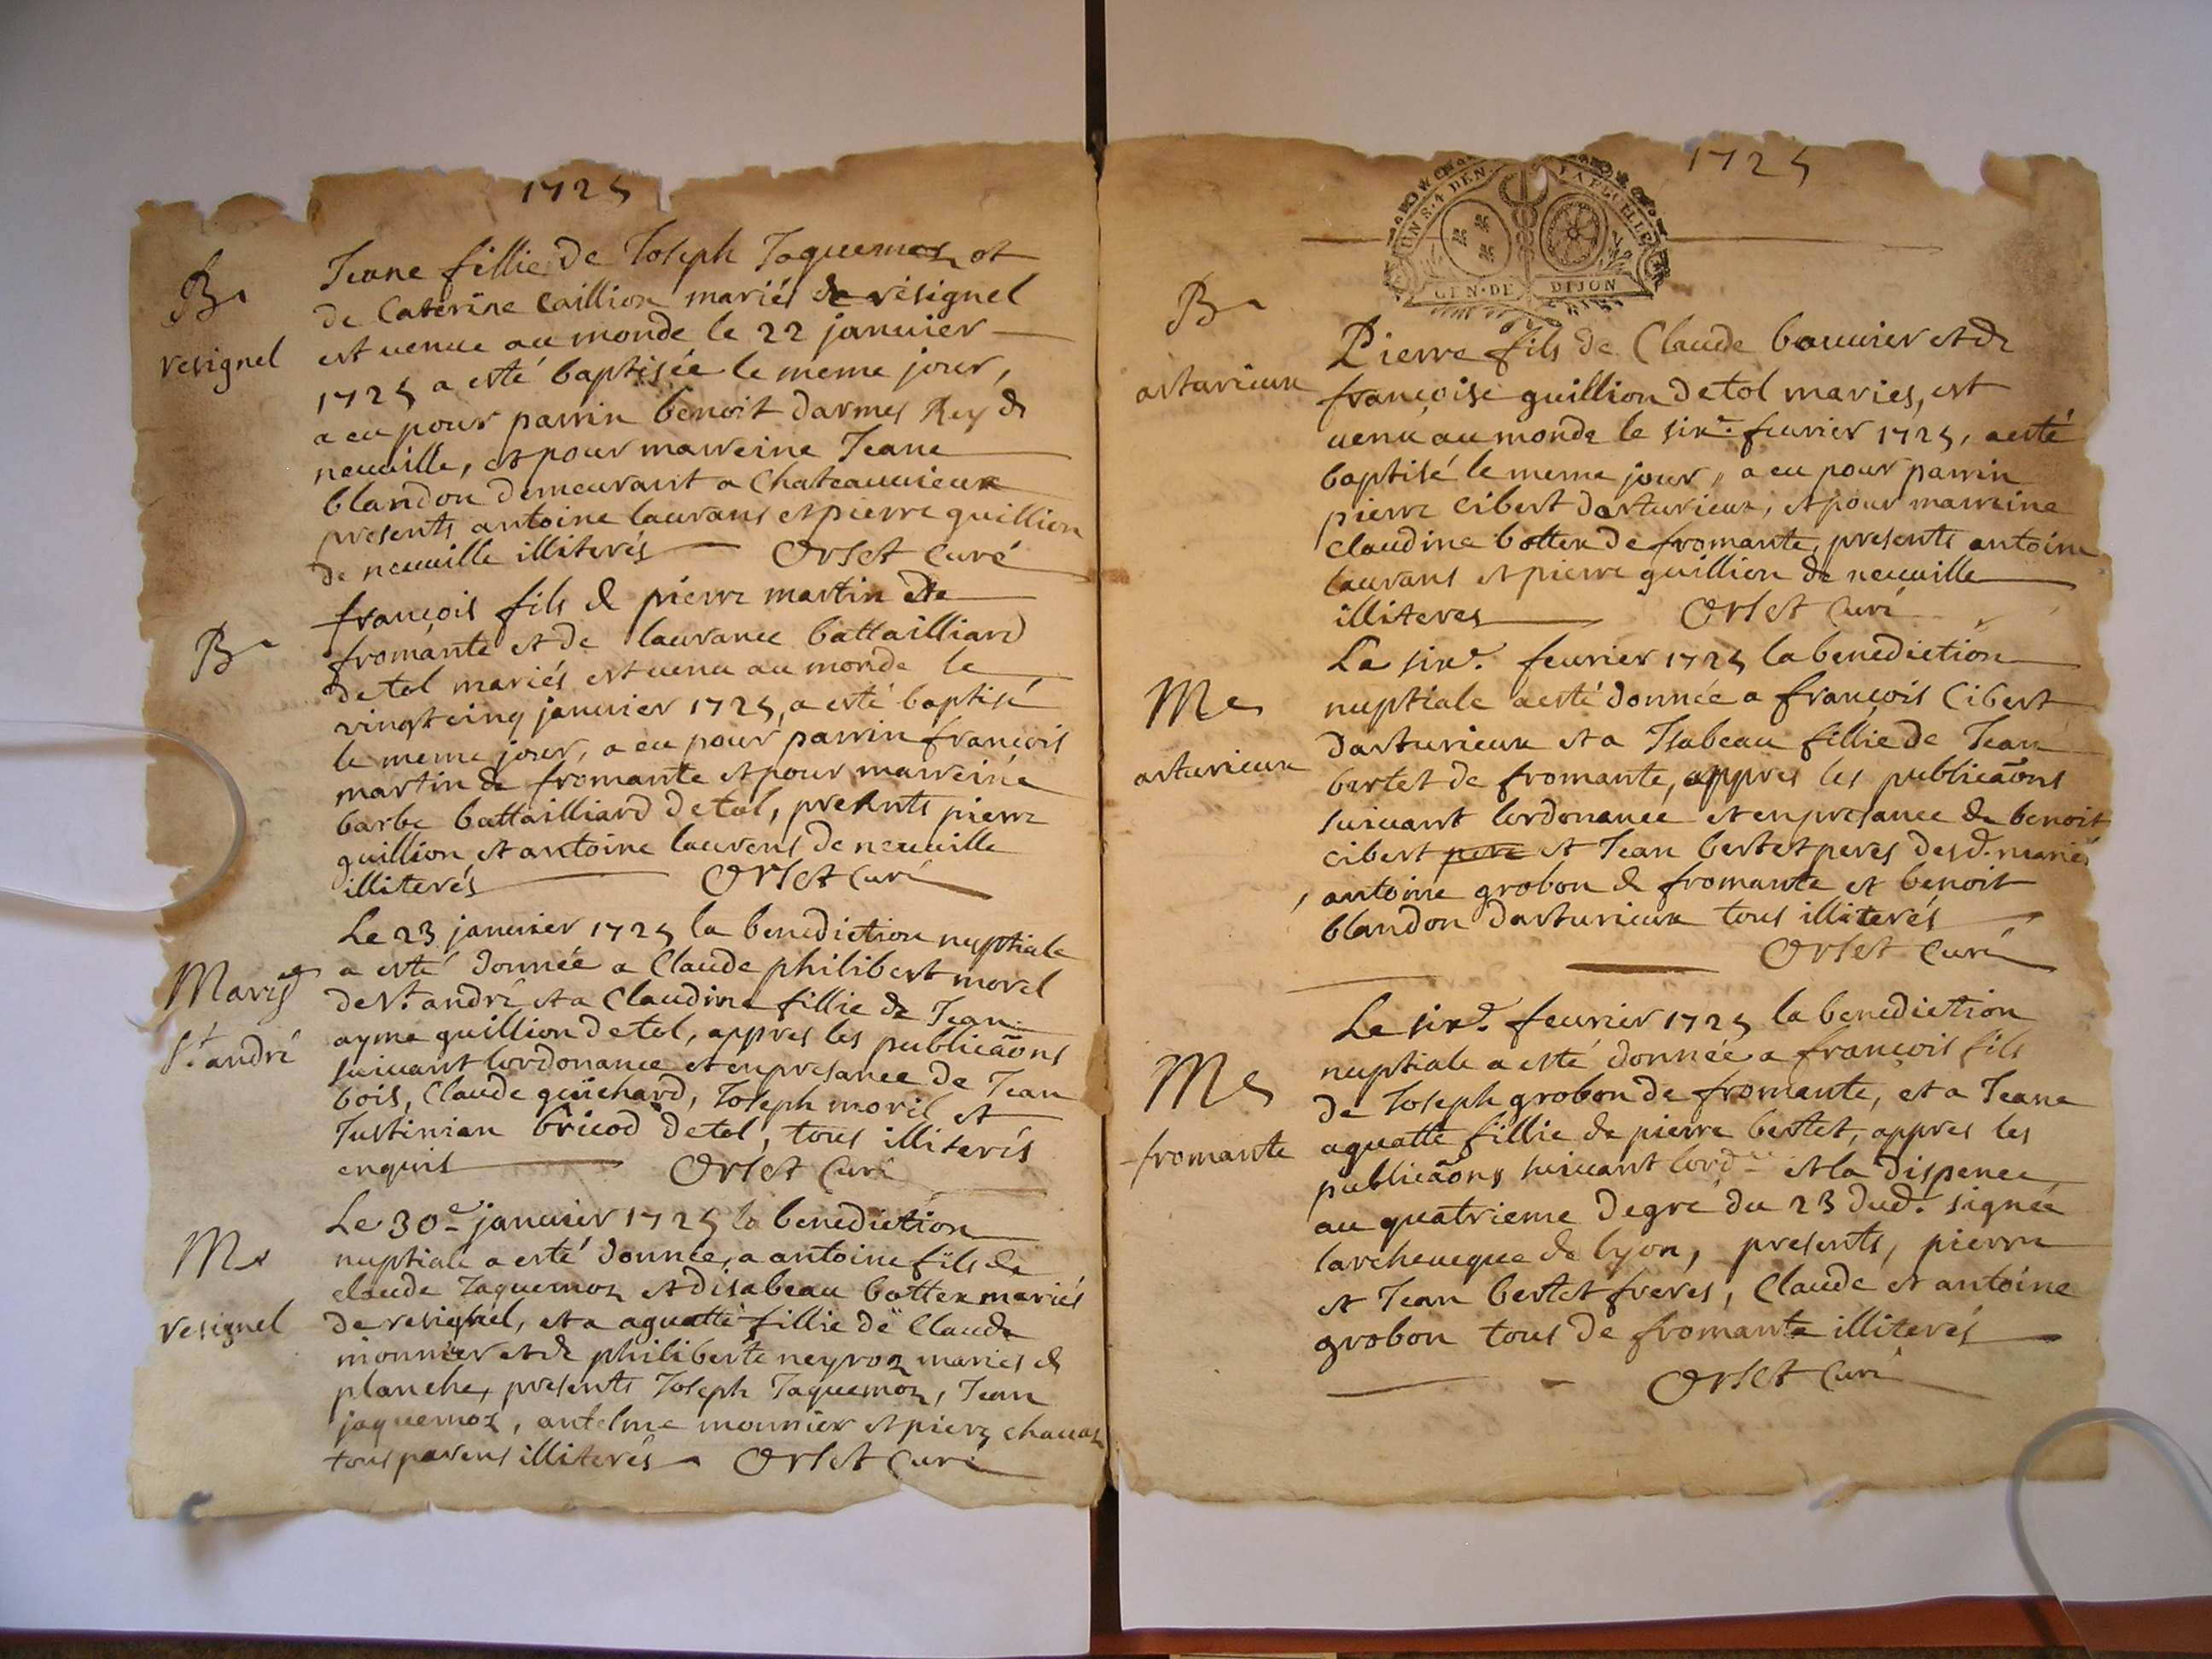 1725
B
resignel
Jeane fillie de Joseph Jaquemoz et
de Caterine Caillion mariés de resignel
est venue au monde le 22 januier
1725 a esté baptisée le meme jour,
a eu pour parrin benoit darmes Rey de
neuuille, et pour marreine Jeane
blandon demeurant a Chateauuieux
presents antoine laurans et pierre guillion
de neuuille illiterés Orset Curé
B
françois fils de pierre martin de
fromante et de laurance battailliard
de tol mariés est uenu au monde le
vingt cinq januier 1725, a esté baptisé
le meme jour, a eu pour parrin françois
martin de fromante et pour marreine
barbe battailliard de tol, presents pierre
guillion et antoine laurens de neuuille
illiterés Orset Curé
Mariage
St. andré
Le 23 januier 1725 la benediction nuptiale
a esté donnée a Claude philibert morel
de St. andré et a Claudine fillie de Jean
ayme guillion de tol, appres les publicaõns
suiuant lordonance et en presance de Jean
bois, Claude guichard, Joseph morel et
Justinian bricod de tol, tous illiterés
enquis Orset Curé
Me
resignel
Le 30e januier 1725 la benediction
nuptiale a esté donnée, a antoine fils de
claude Jaquemoz et disabeau bottex mariés
de resignel, et a aguatte fillie de Claude
monnier et de philiberte neyroz mariés de
planche, presents Joseph Jaquemoz, Jean
jaquemoz, antelme monnier et pierre chauaz
tous parens illiterés Orset Curé
1725
UN S. 4 DEN. LA FEUILLE
GEN. DE DIJON
B
arturieux
Pierre fils de Claude bouuier et de
françoise guillion de tol mariés, est
uenu au monde le sixe. feurier 1725, a esté
baptisé le meme jour, a eu pour parrin
pierre Cibert darturieux, et pour marreine
Claudine bottex de fromante, presents antoine
laurans et pierre guillion de neuuille
illiteres Orset Curé
Me
arturieux
Le sixe. feurier 1725 la benediction
nuptiale a esté donnée a françois Cibert
darturieux et a Isabeau fillie de Jean
bertet de fromante, appres les publicaõns
suiuant lordonance et en presance de benoit
cibert pere et Jean bertet peres desd. mariés
, antoine grobon de fromante et benoit
blandon darturieux tous illiterés
Orset Curé
Me
fromante
Le sixe. feurier 1725 la benediction
nuptiale a esté donnée a françois fils
de Joseph grobon de fromante, et a Jeane
aguatte fillie de pierre bertet, appres les
publicaõns suiuant lordce et la dispence
au quatrieme degré du 23 dud. signée
larcheueque de lyon, presents, pierre
et Jean bertet freres, Claude et antoine
grobon tous de fromante illiterés
Orset Curé